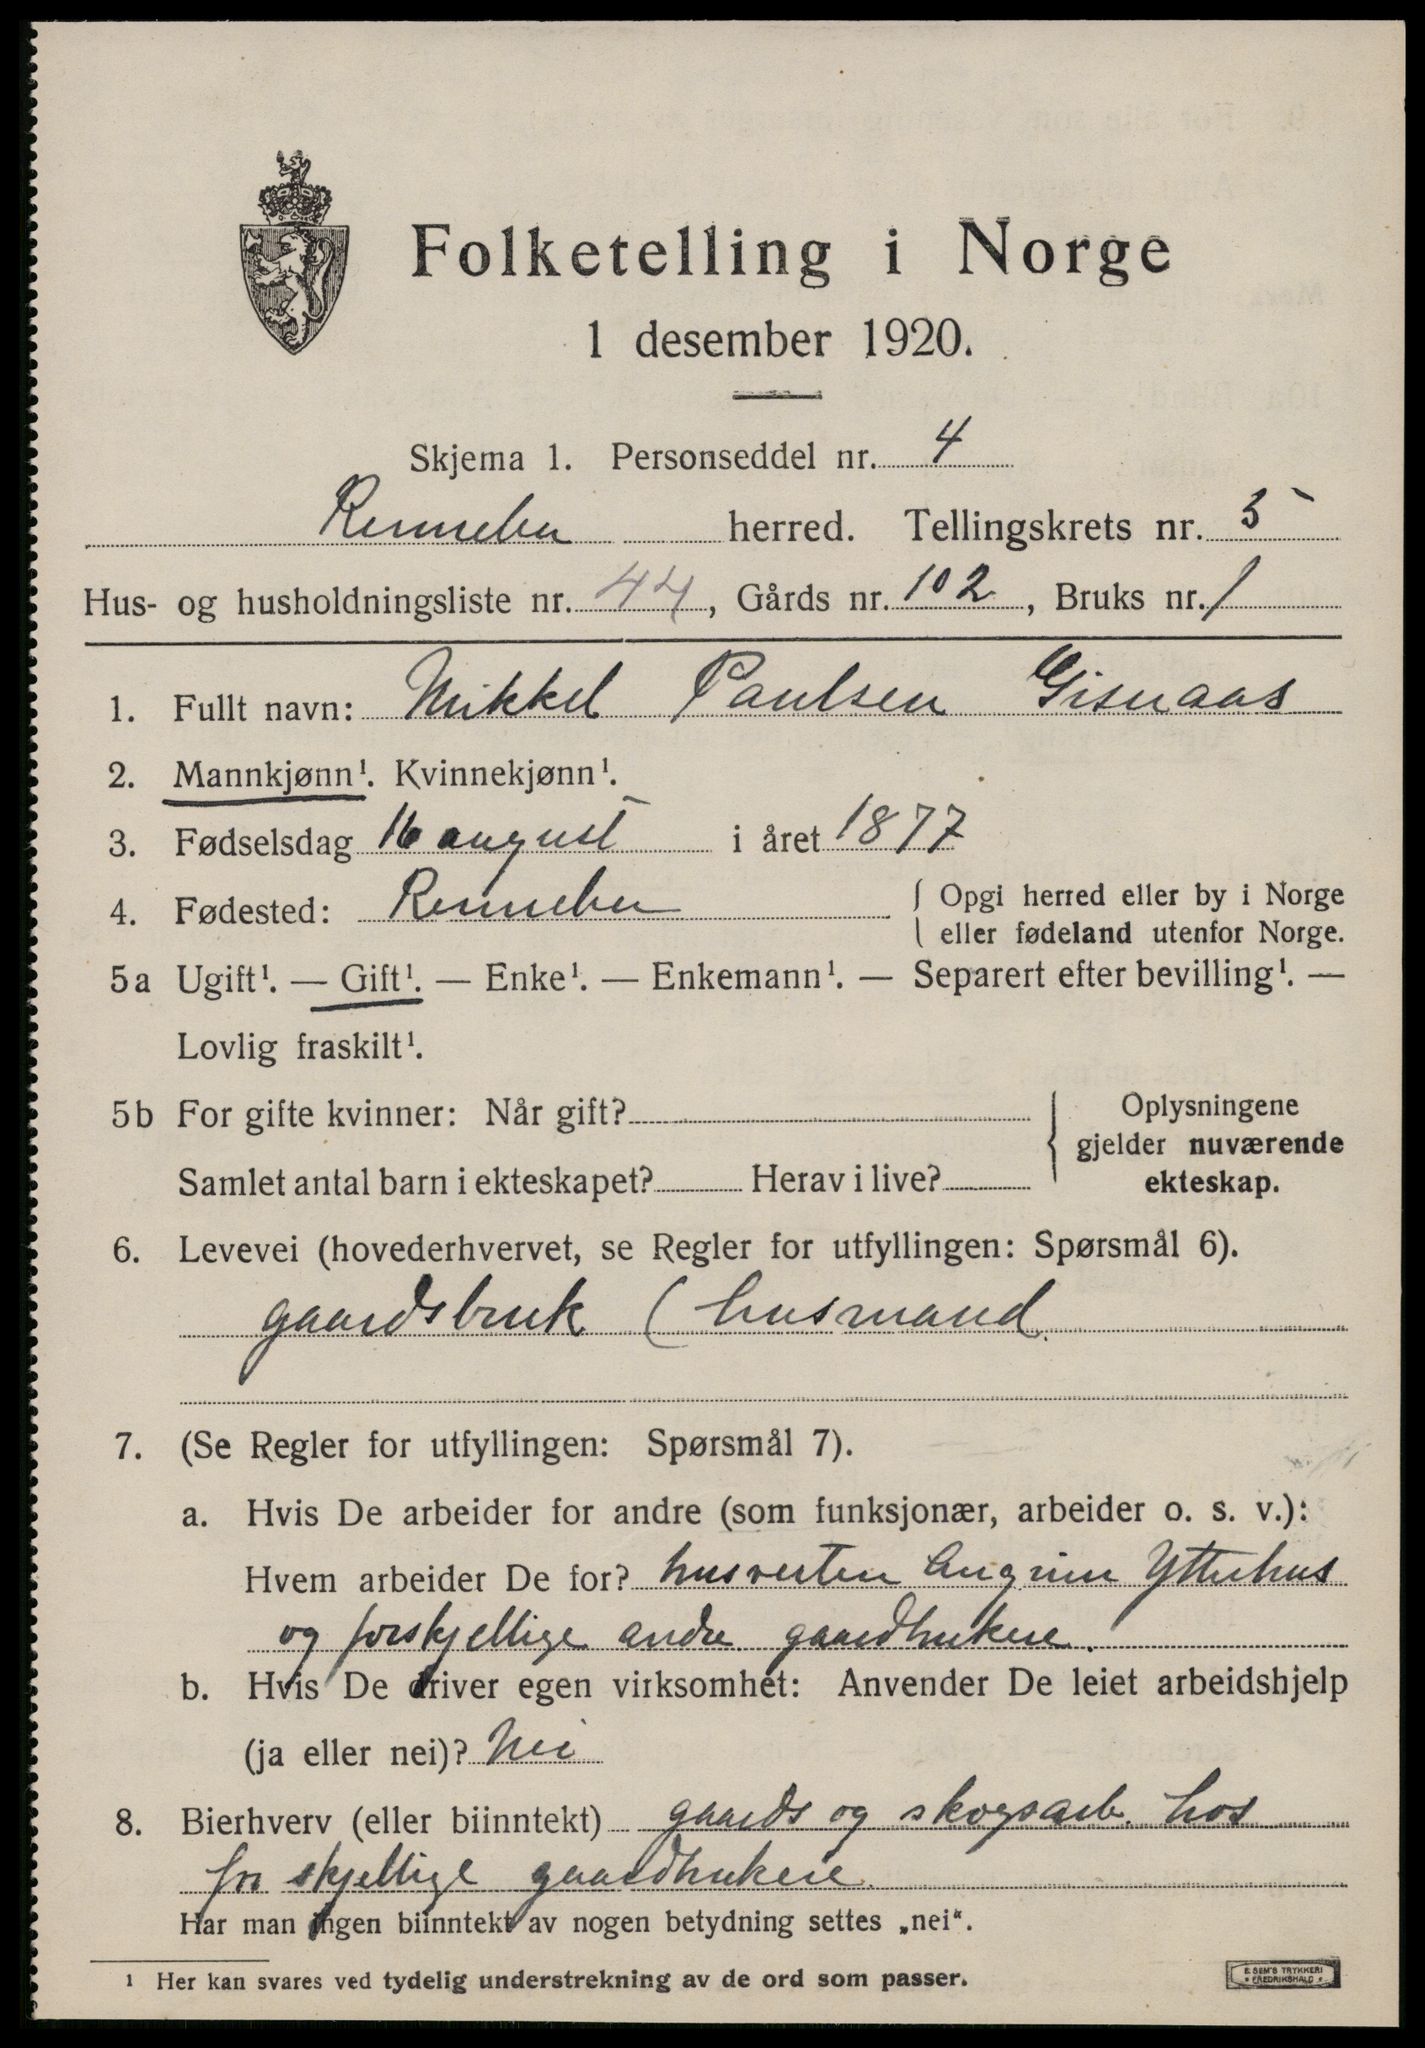 Folketelling i Norge
1 desember 1920.
Skjema 1. Personseddel nr. 4
Rennebu herred. Tellingskrets nr. 5
Hus- og husholdningsliste nr. 44, Gårds nr. 102, Bruks nr. 1
1. Fullt navn: Mikkel Paulsen Gisnaas
2. Mannkjønn¹. Kvinnekjønn¹.
3. Fødselsdag 16 august i året 1877
4. Fødested: Rennebu { Opgi herred eller by i Norge
eller fødeland utenfor Norge.
5a Ugift¹. — Gift¹. — Enke¹. — Enkemann¹. — Separert efter bevilling¹. —
Lovlig fraskilt¹.
5b For gifte kvinner: Når gift? { Oplysningene
gjelder nuværende
Samlet antal barn i ekteskapet? Herav i live? ekteskap.
6. Levevei (hovederhvervet, se Regler for utfyllingen: Spørsmål 6).
gaardsbruk (husmand
7. (Se Regler for utfyllingen: Spørsmål 7).
a. Hvis De arbeider for andre (som funksjonær, arbeider o. s. v.):
Hvem arbeider De for? husverten Angrim Ytterhus
og forskjellige andre gaardbrukere.
b. Hvis De driver egen virksomhet: Anvender De leiet arbeidshjelp
(ja eller nei)? Nei
8. Bierhverv (eller biinntekt) gaards og skogsarb. hos
forskjellige gaardbrukere.
Har man ingen biinntekt av nogen betydning settes „nei“.
¹ Her kan svares ved tydelig understrekning av de ord som passer.
E. SEM'S TRYKKERI
FREDRIKSHALD